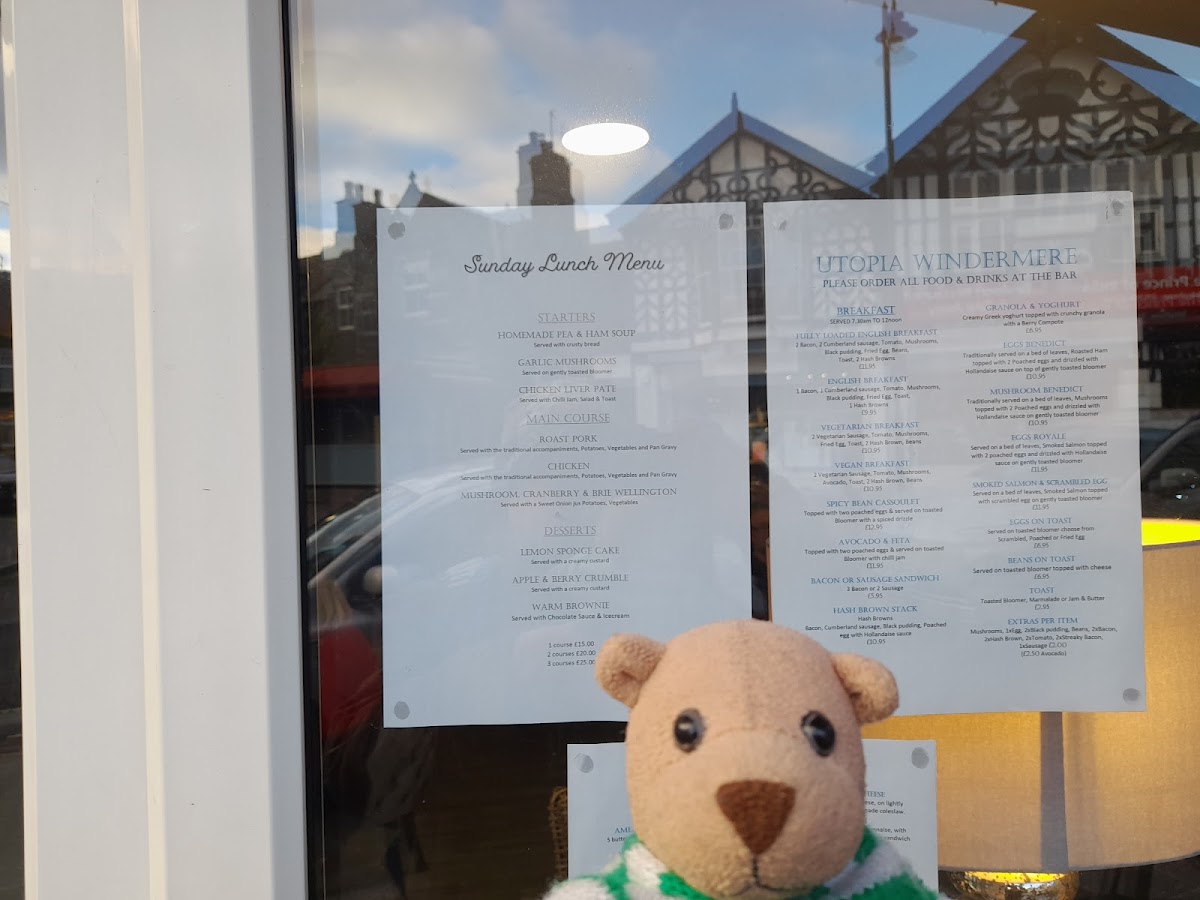 Sunday Lunch Menu
STARTERS
HOMEMADE PEA & HAM SOUP
Served with crusty bread
GARLIC MUSHROOMS
Served on gently toasted bloomer
CHICKEN LIVER PATE
Served with Chilli Jam, Salad & Toast
MAIN COURSE
ROAST PORK
Served with the traditional accompaniments, Potatoes, Vegetables and Pan Gravy
CHICKEN
Served with the traditional accompaniments, Potatoes, Vegetables and Pan Gravy
MUSHROOM, CRANBERRY & BRIE WELLINGTON
Served with a Sweet Onion Jus Potatoes, Vegetables
DESSERTS
LEMON SPONGE CAKE
Served with a creamy custard
APPLE & BERRY CRUMBLE
Served with a creamy custard
WARM BROWNIE
Served with Chocolate Sauce & Icecream
1 course £15.00
2 courses £20.00
3 courses £25.00
UTOPIA WINDERMERE
PLEASE ORDER ALL FOOD & DRINKS AT THE BAR
BREAKFAST
SERVED 7.30am TO 12noon
FULLY LOADED ENGLISH BREAKFAST
2 Bacon, 2 Cumberland sausage, Tomato, Mushrooms,
Black pudding, Fried Egg, Beans,
Toast, 2 Hash Browns
£11.95
ENGLISH BREAKFAST
1 Bacon, 1 Cumberland sausage, Tomato, Mushrooms,
Black pudding, Fried Egg, Toast,
1 Hash Browns
£9.95
VEGETARIAN BREAKFAST
2 Vegetarian Sausage, Tomato, Mushrooms,
Fried Egg, Toast, 2 Hash Brown, Beans
£10.95
VEGAN BREAKFAST
2 Vegetarian Sausage, Tomato, Mushrooms,
Avocado, Toast, 2 Hash Brown, Beans
£10.95
SPICY BEAN CASSOULET
Topped with two poached eggs & served on toasted
Bloomer with a spiced drizzle
£12.95
AVOCADO & FETA
Topped with two poached eggs & served on toasted
Bloomer with chilli jam
£11.95
BACON OR SAUSAGE SANDWICH
3 Bacon or 2 Sausage
£5.95
HASH BROWN STACK
Hash Browns
Bacon, Cumberland sausage, Black pudding, Poached
egg with Hollandaise sauce
£10.95
GRANOLA & YOGHURT
Creamy Greek yoghurt topped with crunchy granola
with a Berry Compote
£6.95
EGGS BENEDICT
Traditionally served on a bed of leaves, Roasted Ham
topped with 2 Poached eggs and drizzled with
Hollandaise sauce on top of gently toasted bloomer
£10.95
MUSHROOM BENEDICT
Traditionally served on a bed of leaves, Mushrooms
topped with 2 Poached eggs and drizzled with
Hollandaise sauce on gently toasted bloomer
£10.95
EGGS ROYALE
Served on a bed of leaves, Smoked Salmon topped
with 2 poached eggs and drizzled with Hollandaise
sauce on gently toasted bloomer
£11.95
SMOKED SALMON & SCRAMBLED EGG
Served on a bed of leaves, Smoked Salmon topped
with scrambled egg on gently toasted bloomer
£11.95
EGGS ON TOAST
Served on toasted bloomer choose from
Scrambled, Poached or Fried Egg
£6.95
BEANS ON TOAST
Served on toasted bloomer topped with cheese
£6.95
TOAST
Toasted Bloomer, Marmalade or Jam & Butter
£2.95
EXTRAS PER ITEM
Mushrooms, 1xEgg, 2xBlack pudding, Beans, 2xBacon,
2xHash Brown, 2xTomato, 2xStreaky Bacon,
1xSausage £2.00
(£2.50 Avocado)
on lightly
coleslaw.
with